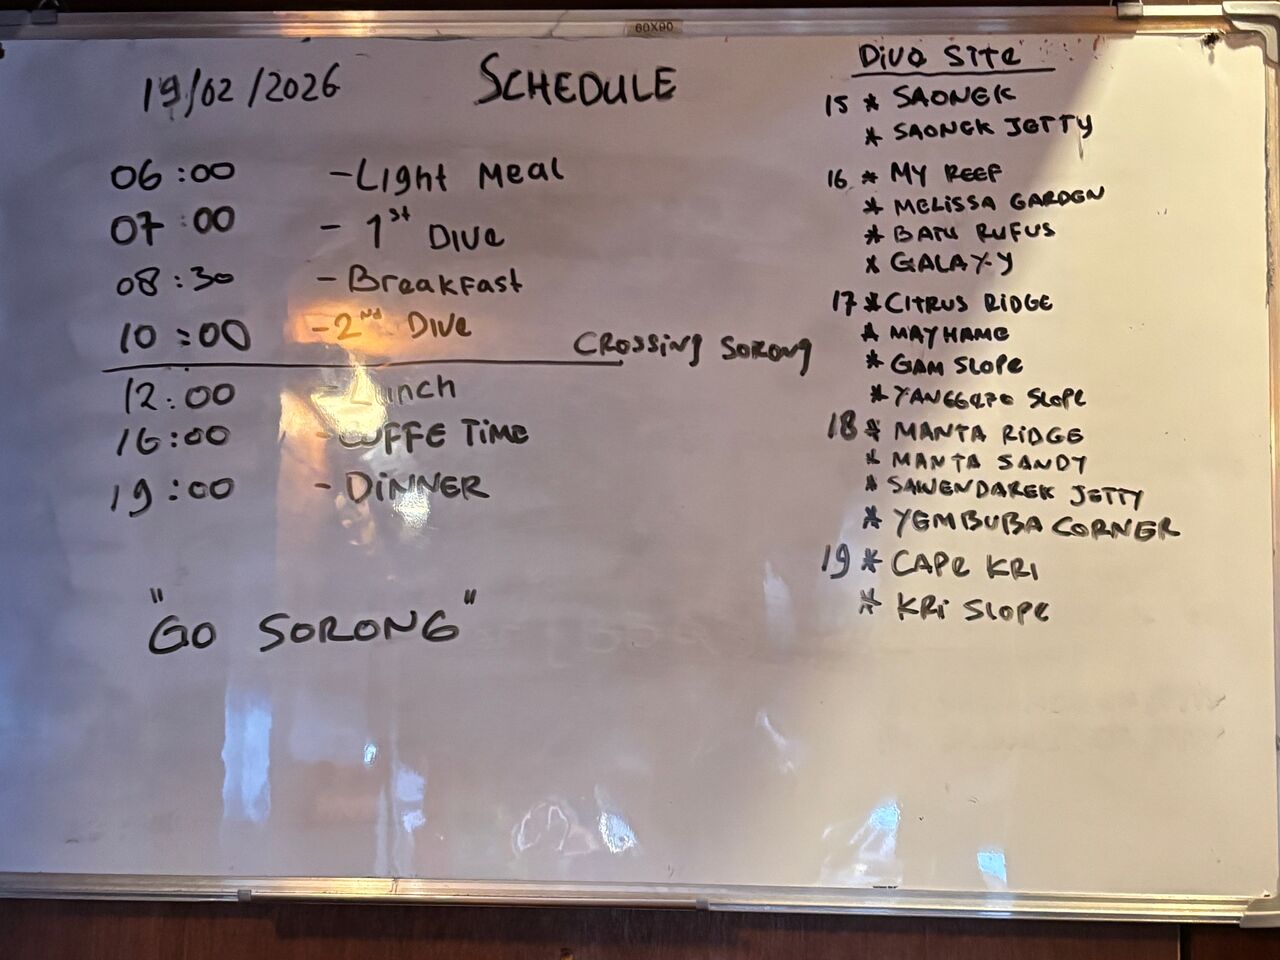 60X90
19/02/2026 SCHEDULE
06:00 - Light Meal
07:00 - 1st Dive
08:30 - Breakfast
10:00 - 2nd Dive
CROSSING SORONG
12:00 - Lunch
16:00 - COFFE TIME
19:00 - DINNER
"GO SORONG"
Dive Site
15 * SAONEK
* SAONEK JETTY
16 * MY REEF
* MELISSA GARDEN
* BATU RUFUS
* GALAXY
17 * CITRUS RIDGE
* MAYHAME
* GAM SLOPE
* SLOPE
18 * MANTA RIDGE
* MANTA SANDY
* SAWENDAREK JETTY
* YEMBUBA CORNER
19 * CAPE KRI
* KRI SLOPE